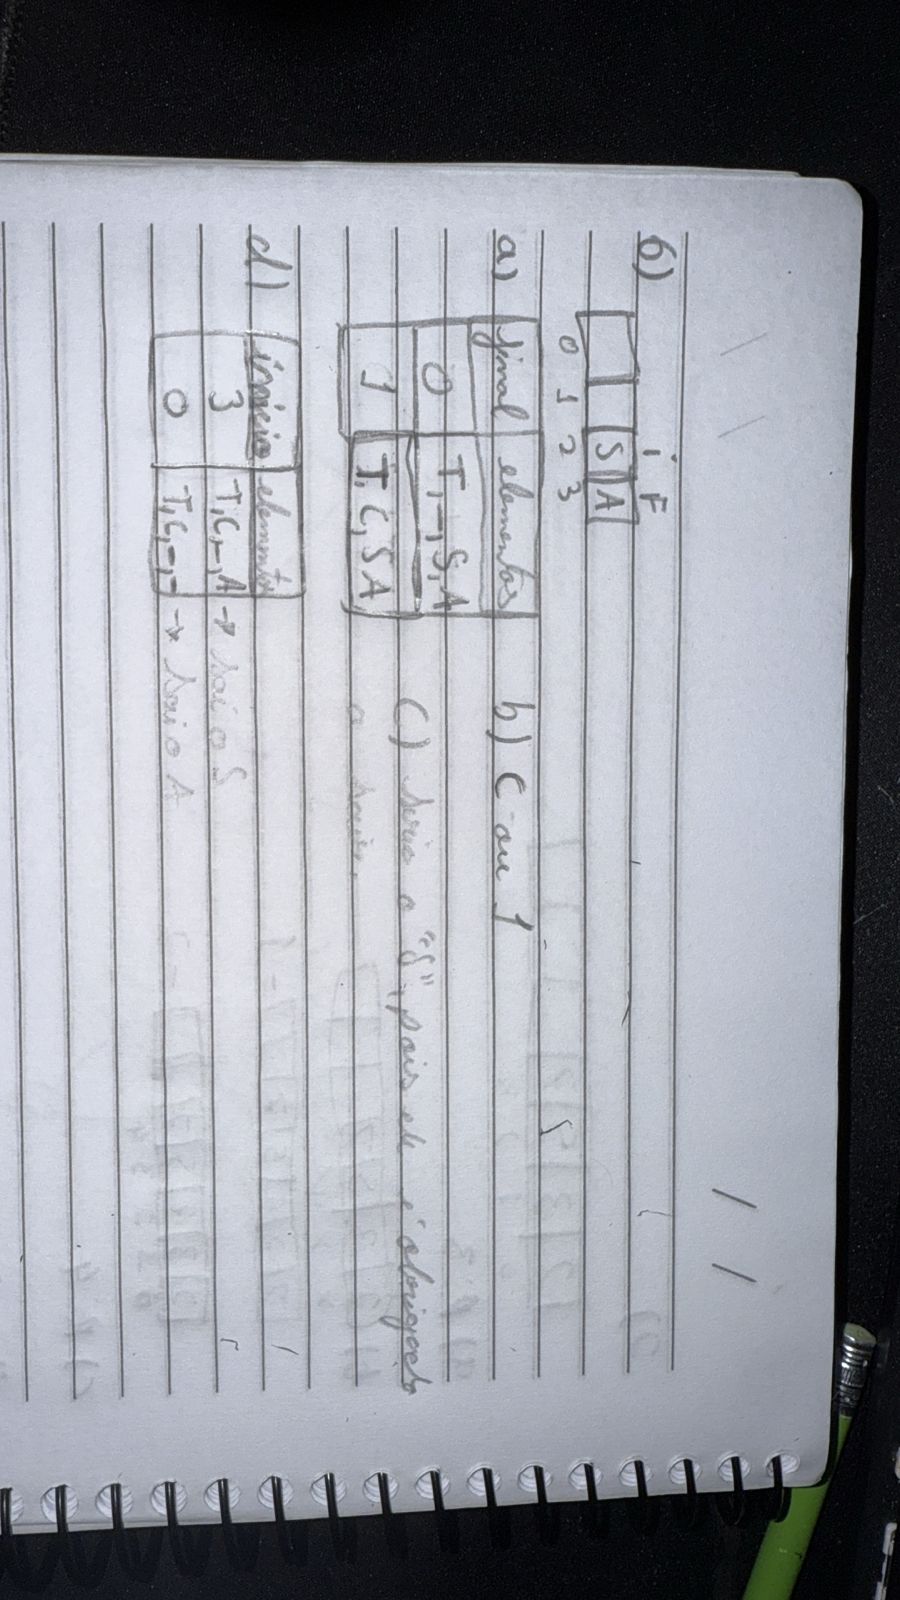 6)
i F
S A
0 1 2 3
a) final elementos b) C ou 1
0 T, -, S, A
1 T, C, S A c) seria o "S", pois ele é obrigado
a sair.
d) início elementos
3 T, C, -, A → sai o S
0 T, C, -, - → sai o A